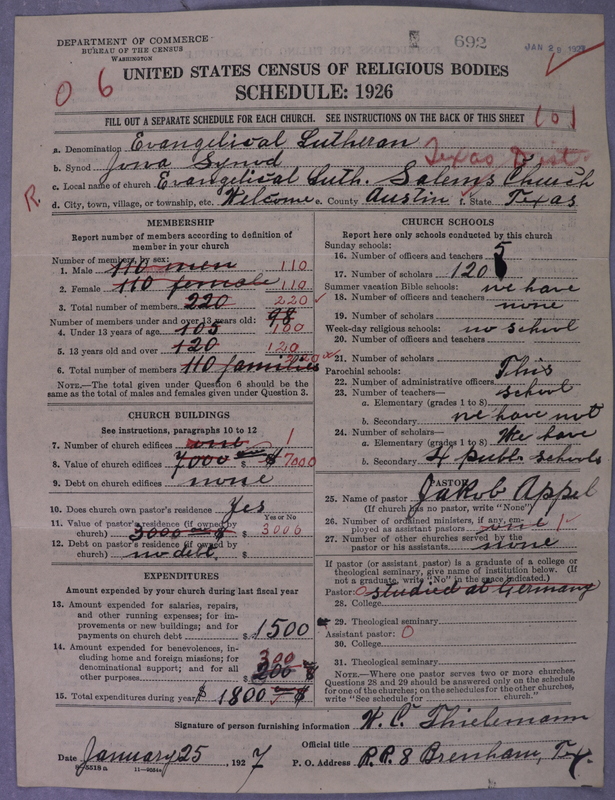 DEPARTMENT OF COMMERCE
BUREAU OF THE CENSUS
WASHINGTON
692
JAN 29 1927
UNITED STATES CENSUS OF RELIGIOUS BODIES
SCHEDULE: 1926
0 6
FILL OUT A SEPARATE SCHEDULE FOR EACH CHURCH. SEE INSTRUCTIONS ON THE BACK OF THIS SHEET
101
a. Denomination Evangelical Lutheran
b. Synod Iowa Synod Texas Dist.
c. Local name of church Evangelical Luth. Salems Church
R.
d. City, town, village, or township, etc. Welcome e. County Austin f. State Texas
MEMBERSHIP
Report number of members according to definition of
member in your church
Number of members, by sex:
1. Male 110 men 110
2. Female 110 female 110
3. Total number of members 220 220
Number of members under and over 13 years old: 98
4. Under 13 years of age 105 100
5. 13 years old and over 120 120
6. Total number of members 110 families 220
NOTE.—The total given under Question 6 should be the
same as the total of males and females given under Question 3.
CHURCH BUILDINGS
See instructions, paragraphs 10 to 12
7. Number of church edifices one 1
8. Value of church edifices 7000 $ 7000
9. Debt on church edifices none
10. Does church own pastor's residence Yes
Yes or No
11. Value of pastor's residence (if owned by
church) 3000 $ 3000
12. Debt on pastor's residence (if owned by
church) no debt.
EXPENDITURES
Amount expended by your church during last fiscal year
13. Amount expended for salaries, repairs,
and other running expenses; for im-
provements or new buildings; and for
payments on church debt $ 1500
14. Amount expended for benevolences, in-
cluding home and foreign missions; for
denominational support; and for all
other purposes 300 200 $
15. Total expenditures during year $ 1800 $
CHURCH SCHOOLS
Report here only schools conducted by this church
Sunday schools:
16. Number of officers and teachers 5
17. Number of scholars 120
Summer vacation Bible schools: we have
18. Number of officers and teachers none
19. Number of scholars
Week-day religious schools: no school
20. Number of officers and teachers
21. Number of scholars
Parochial schools: This
22. Number of administrative officers
23. Number of teachers— school
a. Elementary (grades 1 to 8)
b. Secondary we have not
24. Number of scholars—
a. Elementary (grades 1 to 8) We have
b. Secondary 4 publ. schools
PASTOR
25. Name of pastor Jakob Appel
(If church has no pastor, write "None")
26. Number of ordained ministers, if any, em-
ployed as assistant pastors one 1
27. Number of other churches served by the
pastor or his assistants none
If pastor (or assistant pastor) is a graduate of a college or
theological seminary, give name of institution below. (If
not a graduate, write "No" in the space indicated.)
Pastor: 0 studied at Germany
28. College
29. Theological seminary
Assistant pastor: 0
30. College
31. Theological seminary
NOTE.—Where one pastor serves two or more churches,
Questions 28 and 29 should be answered only on the schedule
for one of the churches; on the schedules for the other churches,
write "See schedule for church."
Signature of person furnishing information W. C. Thielemann
Official title
Date January 25, 1927 P. O. Address R.R. 8 Brenham, Tex.